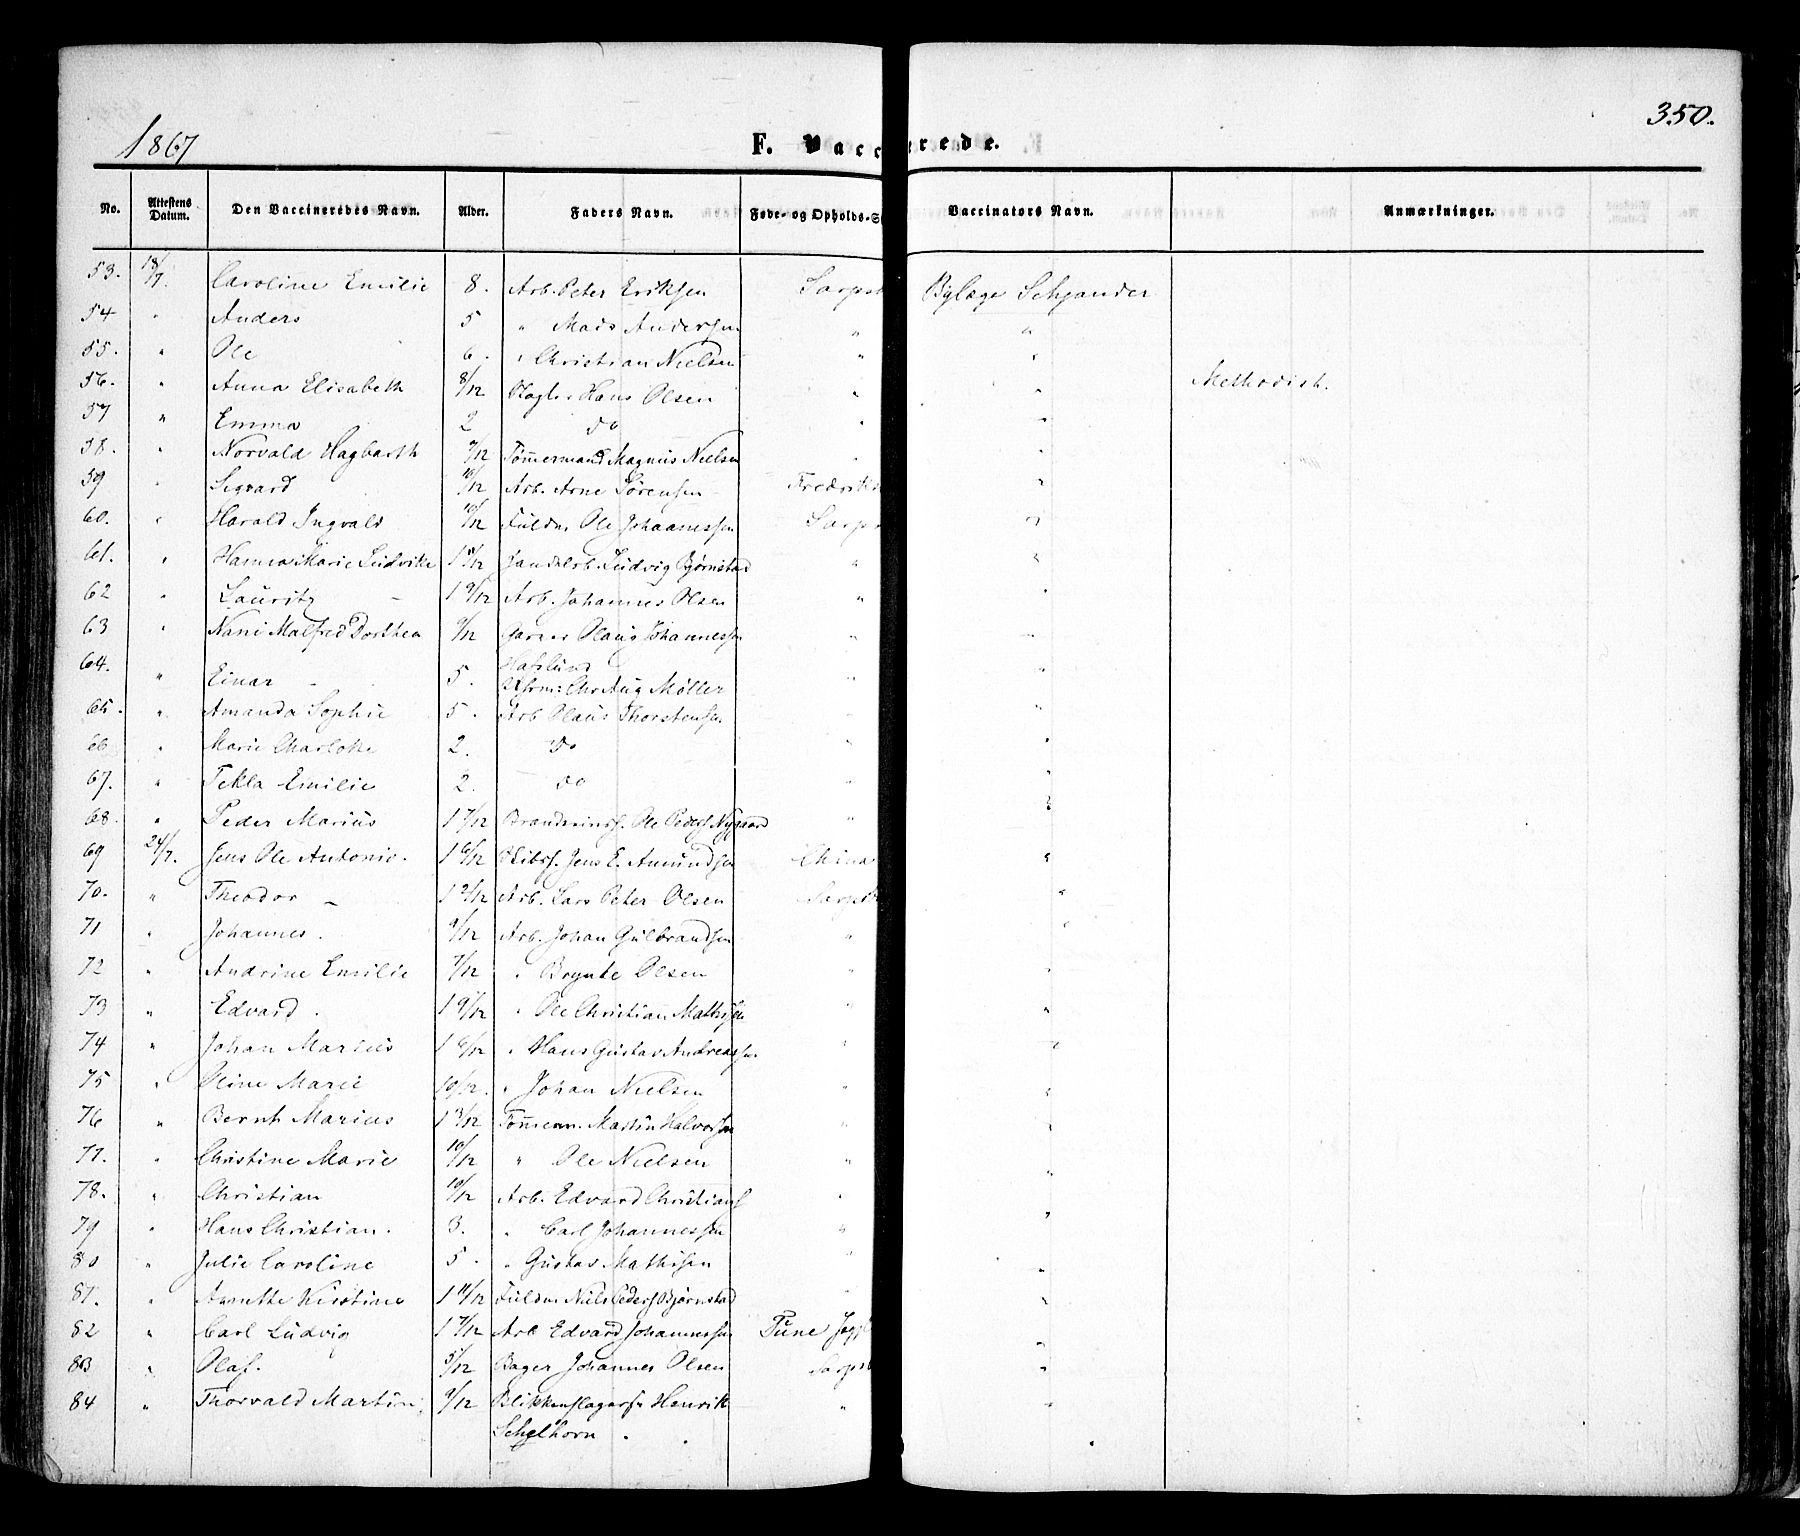 1867
350.
F. Vacc rede.
No. Attestens Datum. Den Vaccineredes Navn. Alder. Faders Navn. Føde- og Opholds-S Vaccinators Navn. Anmærkninger.
53. 18/7. Caroline Emilie 8. Arb. Peter Eriksen Sarpsb Bylæge Schjander
54 " Anders 5 " Mads Andersen " "
55. " Ole 6. " Christian Nielsen " "
56. " Anna Elisabeth 8/12 Hans Olsen " " Methodist.
57 " Emma 2 do " "
58. " Norvald Hagbarth 7/12 Tømmermand Magnus Nielsen " "
59 " Sigvard 10/12 Arb. Arne Sørensen Fredriks "
60. " Harald Ingvald 10/12 Fuldm Ole Johannessen Sarps "
61. " Hanna Marie Ludvike 1 11/12 Ludvig Bjørnstad " "
62 " Lauritz 1 9/12 Arb. Johannes Olsen " "
63 " Nani Malfred Dorthea 9/12 Garver Olaus Johannessen " "
64. " Einar 5. Hafslund Chr Aug Møller " "
65. " Amanda Sophie 5. Arb Olaus Thorstensen " "
66 " Marie Charlotte 2. do " "
67. " Tekla Emilie 2. do " "
68. " Peder Marius 1 7/12 Ole Peders Nygaard " "
69 24/7. Jens Ole Antonio. 1 6/12 Skibsf. Jens E. Amundsen China "
70. " Theodor 1 2/12 Arb. Lars Peter Olsen Sarpsb "
71 " Johannes. 9/12 Arb. Johan Gulbrandsen " "
72 " Andrine Emilie 7/12 " Brynte Olsen " "
73 " Edvard. 1 9/12 " Ole Christian Mathisen " "
74 " Johan Marius 1 6/12 " Hans Gustav Andreassen " "
75 " Oline Marie 10/12. " Johan Nielsen " "
76 " Bernt Marius 1 3/12 Tømerm. Martin Halvorsen " "
77. " Christine Marie 10/12 " Ole Nielsen " "
78. " Christian 10/12 Arb. Edvard Christians " "
79 " Hans Christian. 3. " Carl Johannessen " "
80 " Julie Caroline 5. " Gustav Mathisen " "
81. " Anette Kirstine 1 11/12 Fuldm Niels Peders Bjørnstad " "
82 " Carl Ludvig 1 7/12 Arb Edvard Johannessen Tune "
83 " Olaf. 5/12 Bager Johannes Olsen Sarpsb "
84 " Thorvald Martin 9/12 Blikkenslagersv Henrik " "
Schelhorn